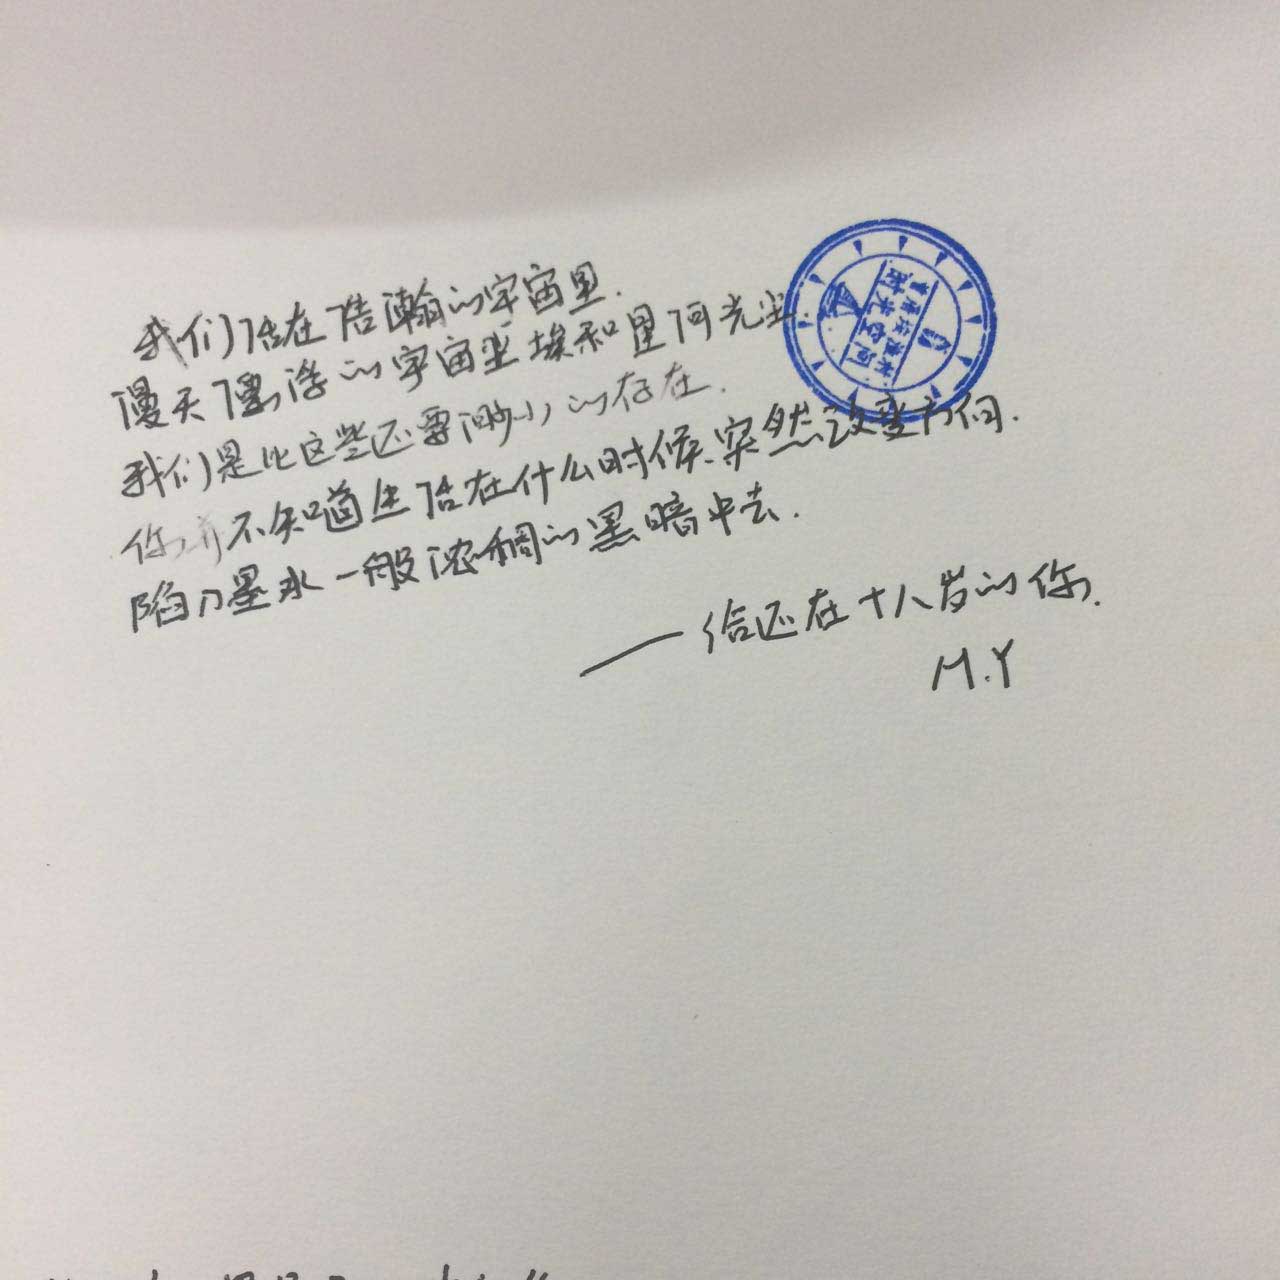 我们活在浩瀚的宇宙里.
漫天漂浮的宇宙尘埃和星河光尘.
我们是比这些还要渺小的存在.
你并不知道生活在什么时候.突然改变方向.
陷入墨水一般浓稠的黑暗中去.
——给还在十八岁的你.
M.Y